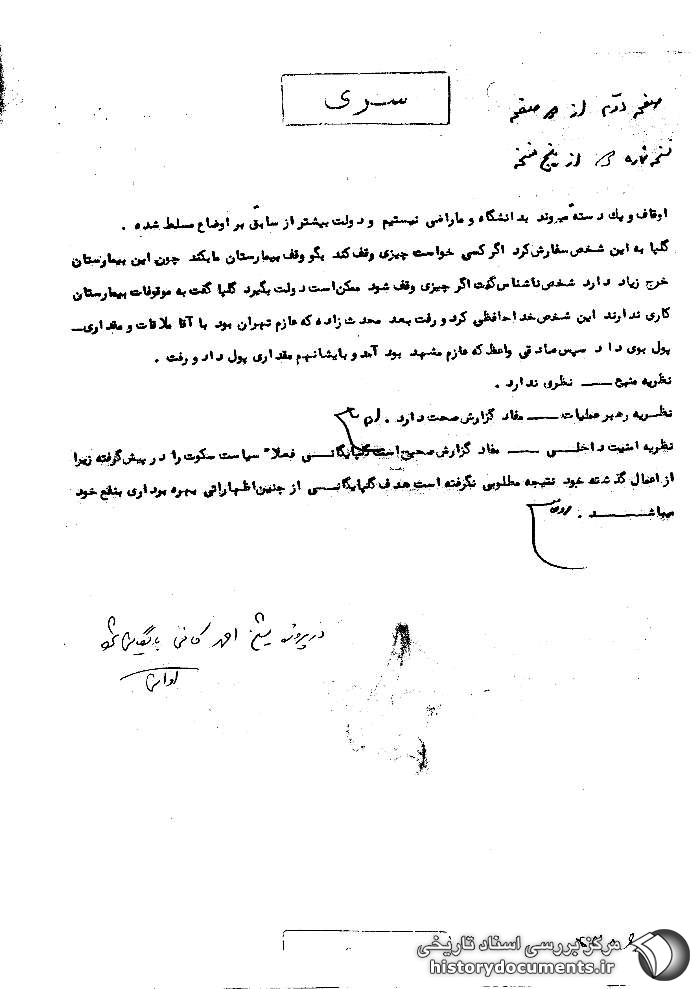 سری
صفحه دوم از صفحه
نسخه شماره از پنج نسخه
اوقاف و یك دسته میروند بدانشگاه و ماراضی نیستیم و دولت بیشتر از سابق بر اوضاع مسلط شده .
گلپا به این شخص سفارش کرد اگر کسی خواست چیزی وقف کند بگو وقف بیمارستان ما بکند چون این بیمارستان
خرج زیاد دارد شخص ناشناس گفت اگر چیزی وقف شود ممکن است دولت بگیرد گلپا گفت به موقوفات بیمارستان
کاری ندارند این شخص خداحافظی کرد و رفت بعد محدث زاده که عازم تهران بود با آقا ملاقات و مقداری
پول بوی داد سپس صادقی واعظ که عازم مشهد بود آمد و بایشانهم مقداری پول داد و رفت .
نظریه منبع ــ نظری ندارد .
نظریه رهبر عملیات ــ مفاد گزارش صحت دارد .
نظریه امنیت داخلی ــ مفاد گزارش صحیح است گلپایگانی فعلا" سیاست سکوت را در پیش گرفته زیرا
از اعمال گذشته خود نتیجه مطلوبی نگرفته است هدف گلپایگانی از چنین اظهاراتی بهره برداری بنفع خود
میباشد .
در پرونده شیخ احمد کافی
مرکز بررسی اسناد تاریخی
historydocuments.ir